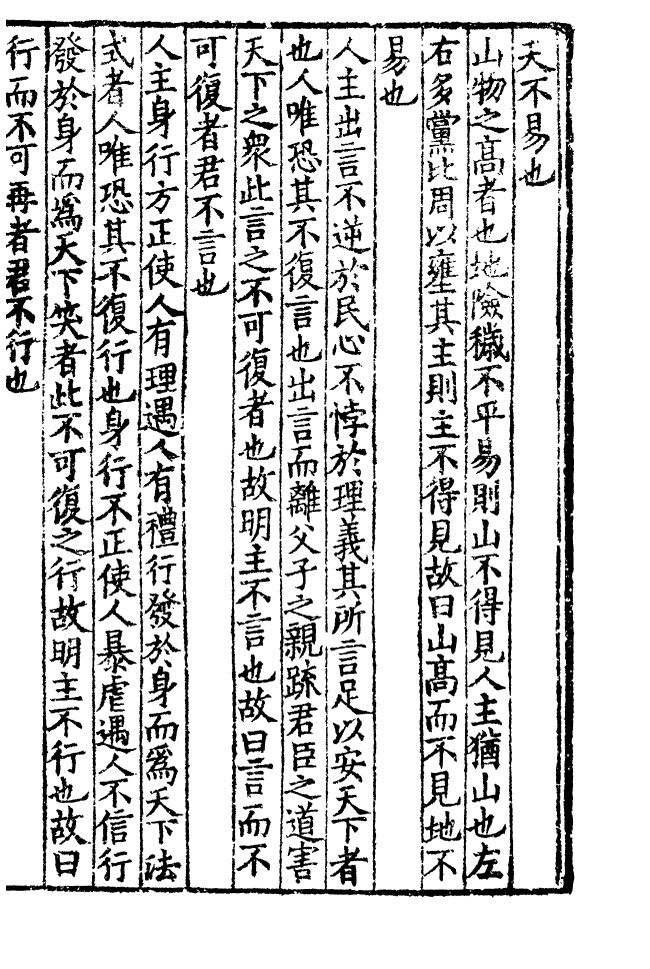 天不易也
山物之高者也地險穢不平易則山不得見人主猶山也左
右多黨比周以壅其主則主不得見故曰山高而不見地不
易也
人主出言不逆於民心不悖於理義其所言足以安天下者
也人唯恐其不復言也出言而離父子之親疏君臣之道害
天下之衆此言之不可復者也故明主不言也故曰言而不
可復者君不言也
人主身行方正使人有理遇人有禮行發於身而爲天下法
式者人唯恐其不復行也身行不正使人暴虐遇人不信行
發於身而爲天下笑者此不可復之行故明主不行也故曰
行而不可再者君不行也